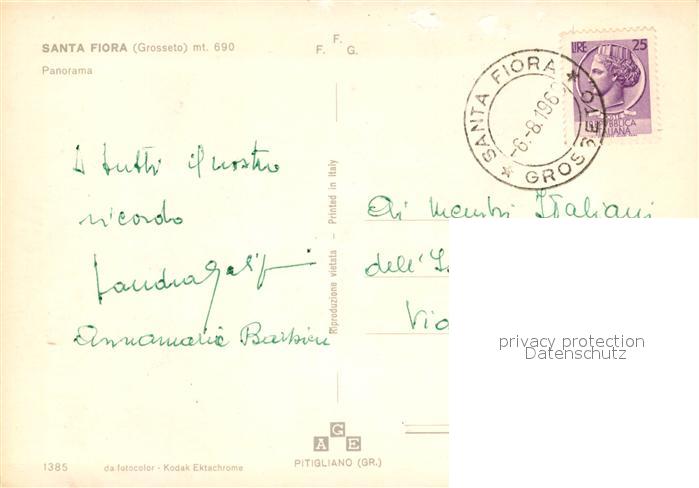 SANTA FIORA (Grosseto) mt. 690
Panorama
F.
F. G.
LIRE 25
REPUBBLICA
ITALIANA
* SANTA FIORA * GROSSETO
-6.-8.196
A tutti il nostro
ricordo
Sandra
Annamaria Barbieri
Riproduzione vietata - Printed in Italy
Ai membri Italiani
dell'
Via
privacy protection
Datenschutz
AGE
PITIGLIANO (GR.)
1385
da fotocolor - Kodak Ektachrome